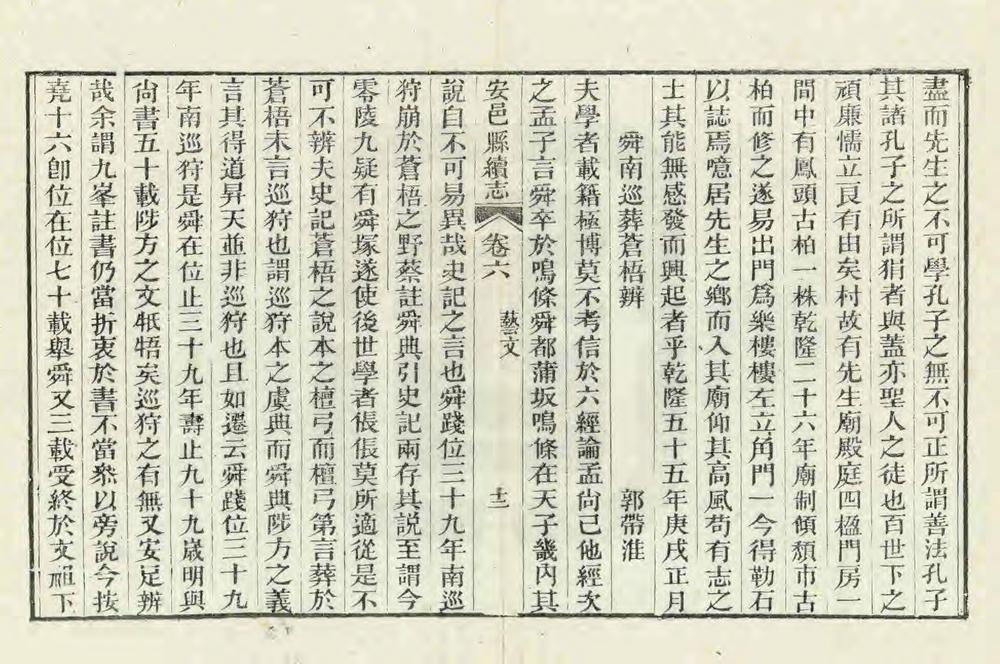 盡而先生之不可學孔子之無不可正所謂善法孔子
其諸孔子之所謂狷者與蓋亦聖人之徒也百世下之
頑廉懦立良有由矣村故有先生廟殿庭四楹門房一
間中有鳳頭古柏一株乾隆二十六年廟制傾頽市古
柏而修之遂易出門爲樂樓樓左立角門一今得勒石
以誌焉噫居先生之鄉而入其廟仰其高風苟有志之
士其能無感發而興起者乎乾隆五十五年庚戌正月
舜南巡葬蒼梧辨 郭帶淮
夫學者載籍極博莫不考信於六經論孟尚已他經次
之孟子言舜卒於鳴條舜都蒲坂鳴條在天子畿內其
安邑縣續志 卷六 藝文 十三
說自不可易異哉史記之言也舜踐位三十九年南巡
狩崩於蒼梧之野蔡註舜典引史記兩存其說至謂今
零陵九疑有舜塚遂使後世學者倀倀莫所適從是不
可不辨夫史記蒼梧之說本之檀弓而檀弓第言葬於
蒼梧未言巡狩也謂巡狩本之虞典而舜典陟方之義
言其得道昇天並非巡狩也且如遷云舜踐位三十九
年南巡狩是舜在位止三十九年壽止九十九歲明與
尚書五十載陟方之文牴牾矣巡狩之有無又安足辨
哉余謂九峯註書仍當折衷於書不當叅以旁說今按
堯十六卽位在位七十載舉舜又三載受終於文祖下